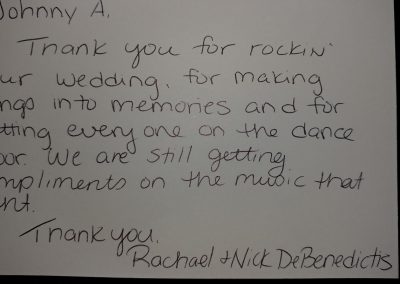 Johnny A.
Thank you for rockin'
ur wedding, for making
ngs into memories and for
tting every one on the dance
oor. We are still getting
mpliments on the music that
nt.
Thank you.
Rachael + Nick DeBenedictis